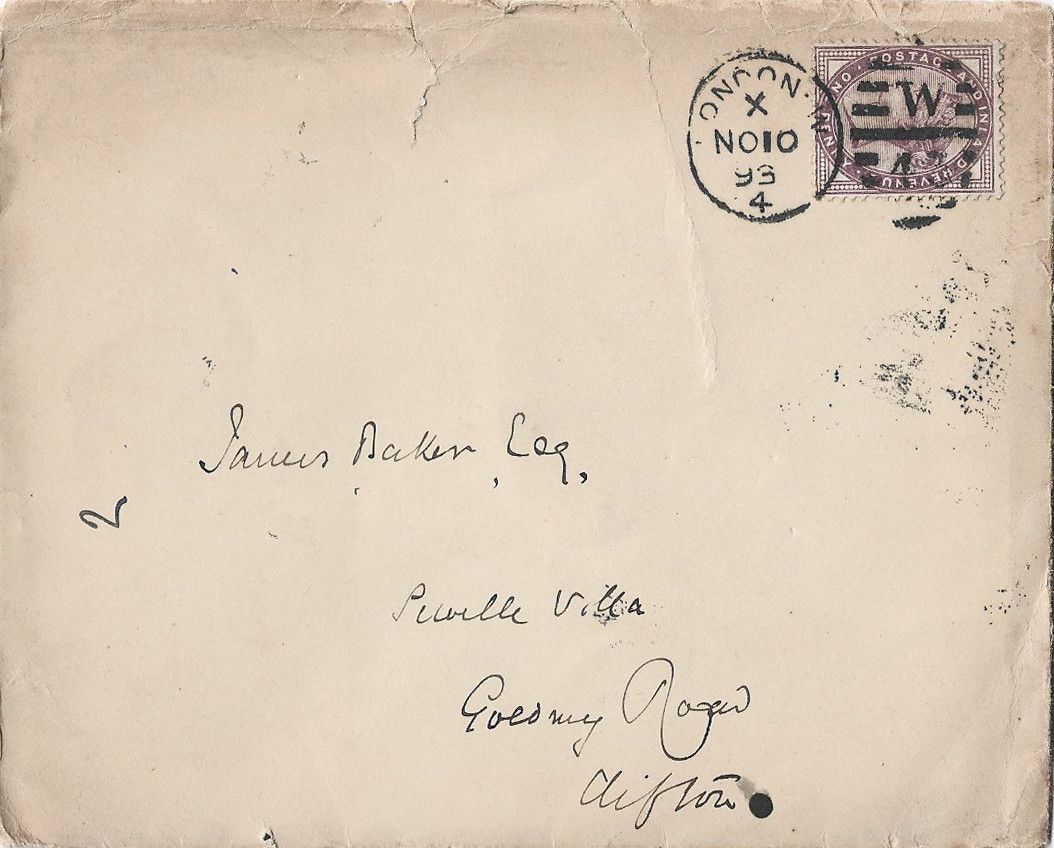 LONDON·W
X
NO 10
93
4
POSTAGE AND INLAND REVENUE
W
James Baker, Esq,
2
Sewelle Villa
Goldney Road
Clifton